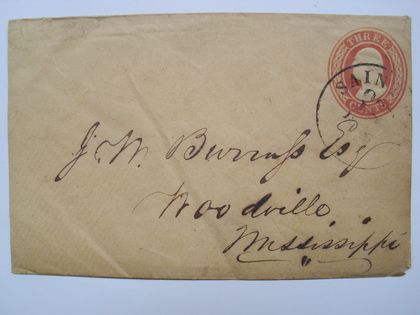 THREE
CENTS
J. W. Burruss Esq
Woodville
Mississippi